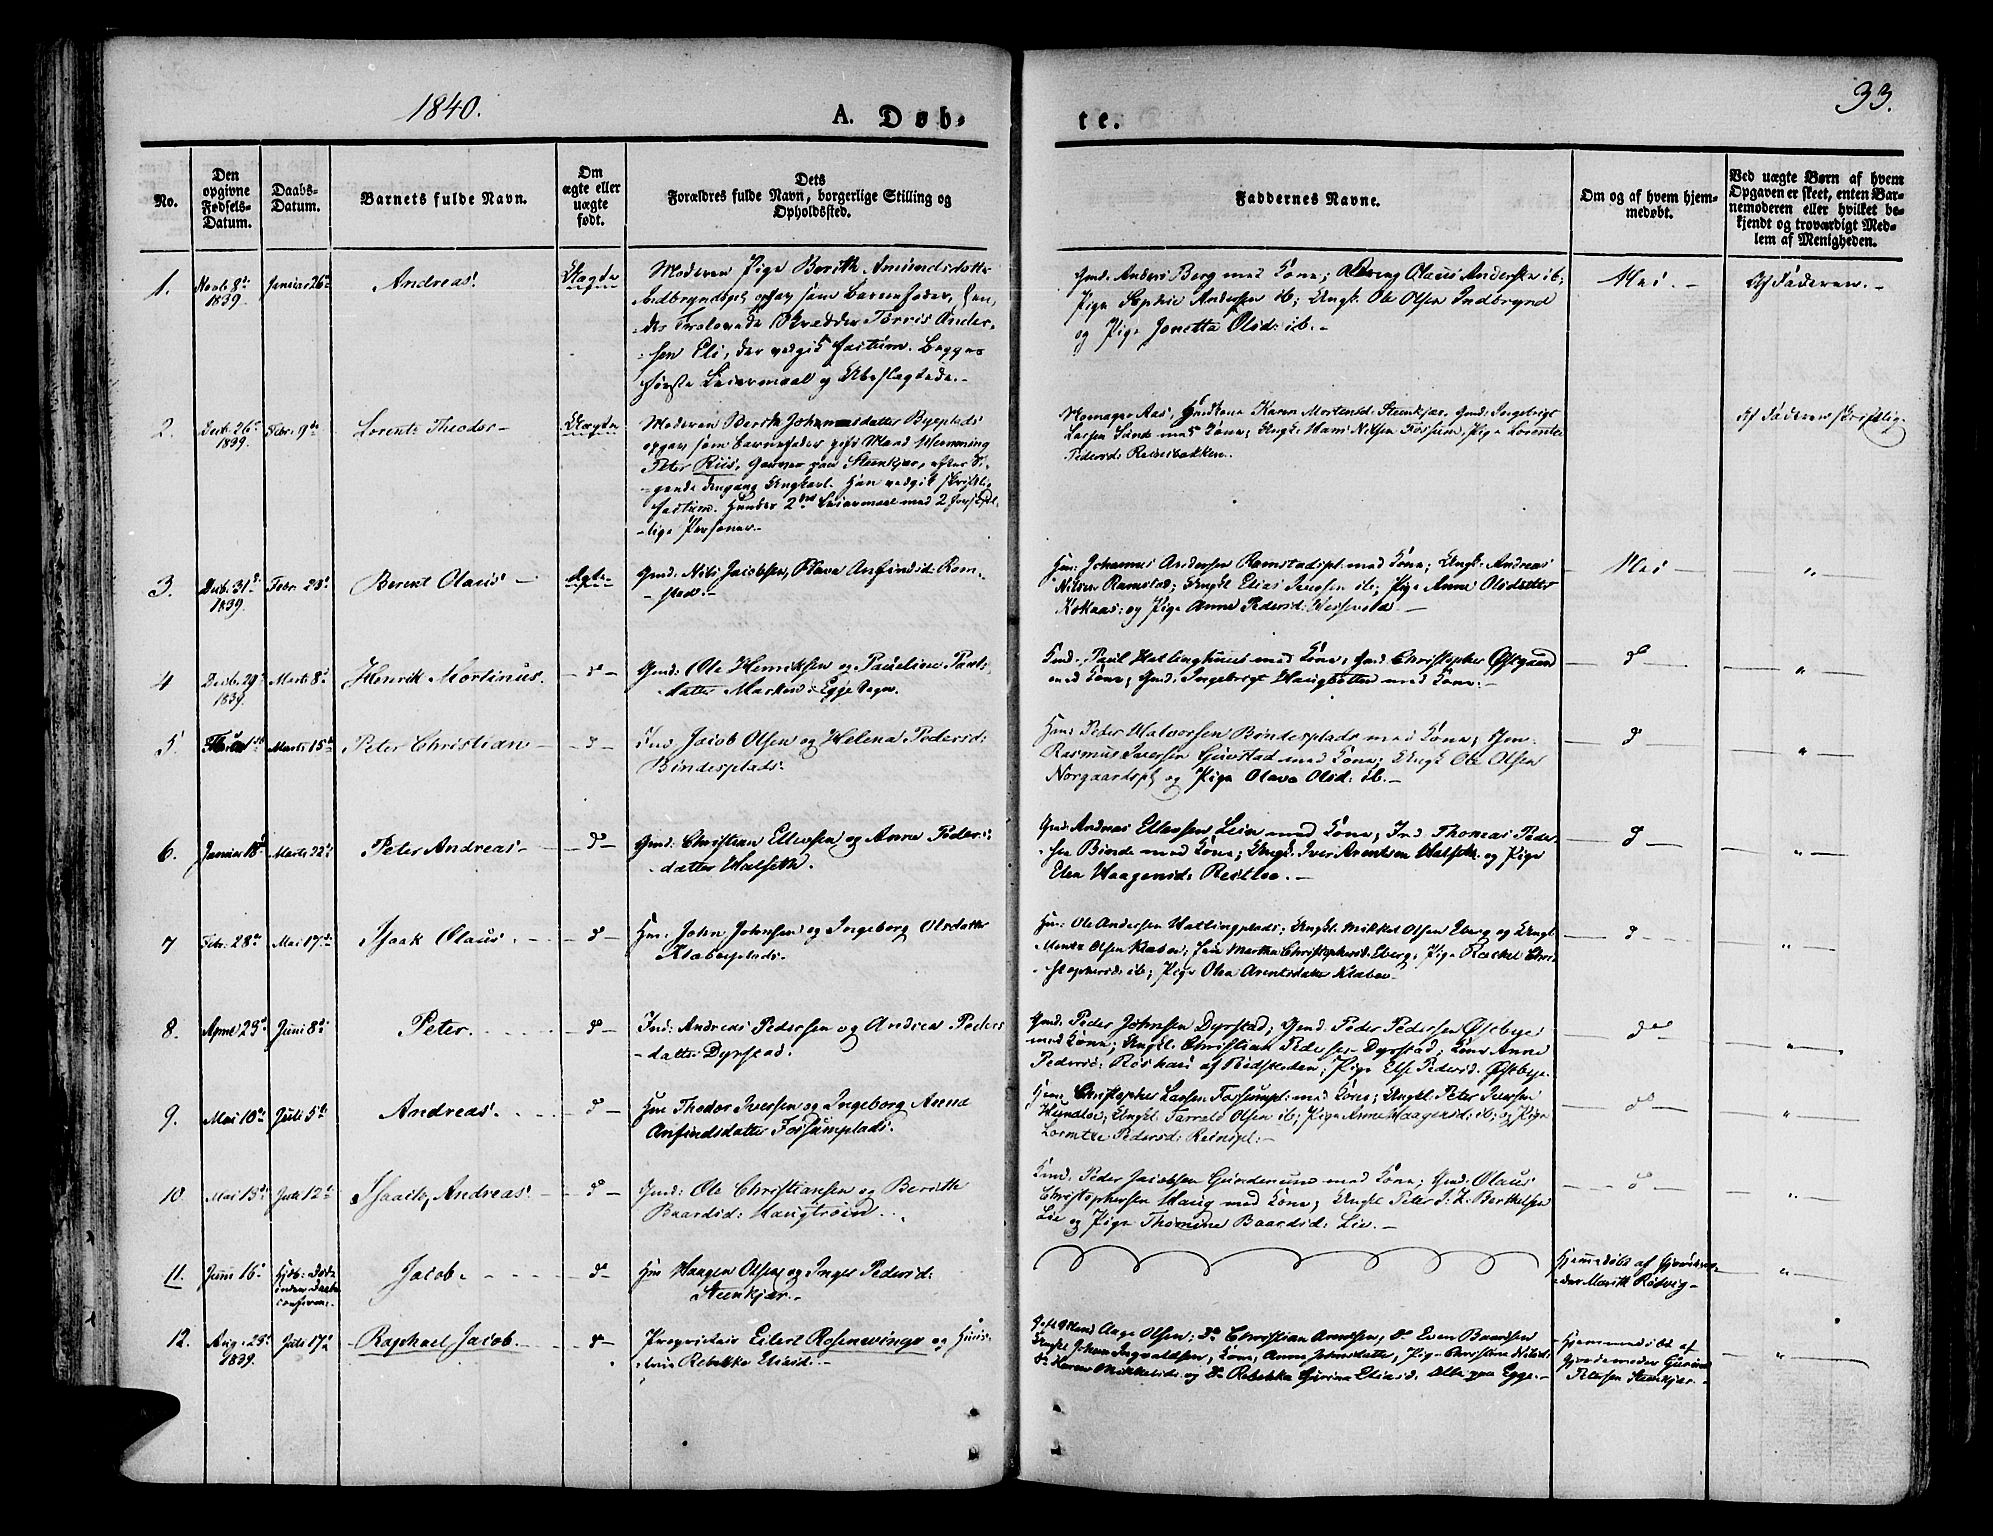 1840.
A. Døb-
te.
33.
No.
Den
opgivne
Fødsels-
Datum.
Daabs-
Datum.
Barnets fulde Navn.
Om
ægte eller
uægte
født.
Dets
Forældres fulde Navn, borgerlige Stilling og
Opholdssted.
Faddernes Navne.
Om og af hvem hjem-
medøbt.
Ved uægte Børn af hvem
Opgaven er skeet, enten Bar-
nemoderen eller hvilket be-
kjendt og troværdigt Med-
lem af Menigheden.
1.
Novb. 8de
1839.
Januar 26de
Andreas.
Uægte
Moderen Pige Berith Amundsdatter
Indbryndspl. opgav som Barnefader, hen-
des Trolovede Skrædder Torris Ander-
sen Eli, der vedgik factum. Begges
første Leiermaal og Ubeslægtede.
Gmd. Anders Berg med Kone; Olaus Andersen ib;
Pige Sophie Andersen ib; Ungk. Ole Olsen Indbrynd
og Pige Jonetta Olsd: ib.
Nei.
Af Faderen.
2.
Decb. 26de
1839.
Febr. 9de
Lorents Theodor
Uægte
Moderen Berith Johannesdatter Byeplads
opgav som Barnefader gift Mand Hemming
Peter Riis, Garver paa Stenkjær, efter Si-
gende dengang Ungkarl. Han vedgik skriftl.
factum. Hendes 2det Leiermaal med 2 forskjel-
lige Personer.
Aas, Karen Mortensd. Steenkjær, Gmd. Ingebrigt
Larsen Sunde med Kone; Ungk. Hans Nilsen Fossum, Pige Lorentse
Pedersd: Reinsbakken.
Af Faderen skriftlig.
3.
Decb. 31te
1839.
Febr. 23de
Berent Olaus
Ægte
Gmd. Nils Jacobsen, Olava Anfindsd: Ram-
stad.
Hm: Johannes Andersen Ramstadspl. med Kone; Ungk. Andreas
Nilsen Ramstad; Ungk. Elias Jensen ib; Pige Anne Olsdatter
Kokaas; og Pige Anne Pedersd:
Nei
"
4
Decb. 29de
1839.
Marts 8de
Henrik Mortinus.
d
Gmd: Ole Henriksen og Pauline Paul-
datter Marken: Egge Sogn.
Gmd. Paul Hatlinghuus med Kone; Gmd. Christopher Østgaard
med Kone; Gmd. Ingebrigt Haugbotten med Kone.
d
"
5.
Marts 15de
Peter Christian
d
Ind. Jacob Olsen og Helena Pedersd:
Bindesplads.
Hm: Peder Halvorsen Bindesplads med Kone; Hm.
Rasmus Iversen Guvstad med Kone; Ungk. Ole Olsen
Norgaardspl. og Pige Olava Olsd: ib.
d
"
6.
Januar 18de
Marts 22de
Peter Andreas.
d
Gmd: Christian Ellevsen og Anne Peders-
datter Halseth.
Gmd: Andreas Ellevsen Lein med Kone; Ind. Thomas Peder-
sen Binde med Kone; Ungk. Iver Arentsen Halseth og Pige
Elen Haagensd: Reitloe.
d
"
7
Febr: 28de
Mai 17de
Isaak Olaus.
d
Hm: John Johnsen og Ingeborg Olsdatter
Klæbesplads.
Hm: Ole Andersen Hatlingplads; Ungk. Mikkel Olsen Eberg og Ungk.
Mentz Olsen Klæbu; Martha Christophersd. Eberg; Pige Rachel Chri-
stophersd: ib; Pige Olea Arentsdatter Klæbu.
d
"
8.
April 23de
Juni 8de
Peter.
d
Ind: Andreas Pedersen og Andrea Peders-
datter Dyrstad.
Gmd: Peder Johnsen Dyrstad; Gmd. Peder Pedersen Østbye
med Kone; Ungk. Christian Pedersen Dyrstad; Kone Anne
Pedersd: Røshaui af Bedstaden; Pige Else Pedersd. Østbye.
d
"
9.
Mai 10de
Juli 5te
Andreas.
d
Hm Theodor Iversen og Ingeborg Anna
Anfindsdatter Fossumplads.
Hm: Christopher Larsen Fossumpl: med Kone; Ungkl. Peter Iversen
Hundlo; Ungkl: Farrelo Olsen ib; Pige Anne Haagensd: ib; og Pige
Lorentze Pedersd: Reinspl:
d
"
10.
Mai 13de
Juli 12te
Isaach Andreas
d
Gmd: Ole Christiansen og Berith
Baardsd: Haugtrøin.
Gmd. Peder Jacobsen Gunderuns med Kone; Gmd. Olaus
Christophersen Haug med Kone; Ungk. Peter J. H. Berthelsen
Lie og Pige Thomine Baardsd: Lie.
d
"
11.
Juni 16de
Hjdb: Død
inden Daabs
confirm:
Jacob.
d
Hm Haagen Olsen og Inger Pedersd:
Steenkjær.
Hjemmedøbt af Gjordemo-
der Marith Rødvig
"
12.
Aug. 23de
1839.
Juli 17de
Raphael Jacob.
d
Proprietair Eilert Rosenvinge og Huus-
Rebekka Eliasd:
Gift Mand Aage Olsen; Do Christian Arentsen; Do Even Baardsen
Ungkl. Johan Ingvaldsen; Kone Anne Johnsdatter, Pige Christine Nilsd:
Do Maren Mikkelsd: og Do Rebekka Gurina Eliasd. Alle paa Egge.
Hjemmedøbt af
Gjordemoder Gurine
Petersen Steenkjær.
"